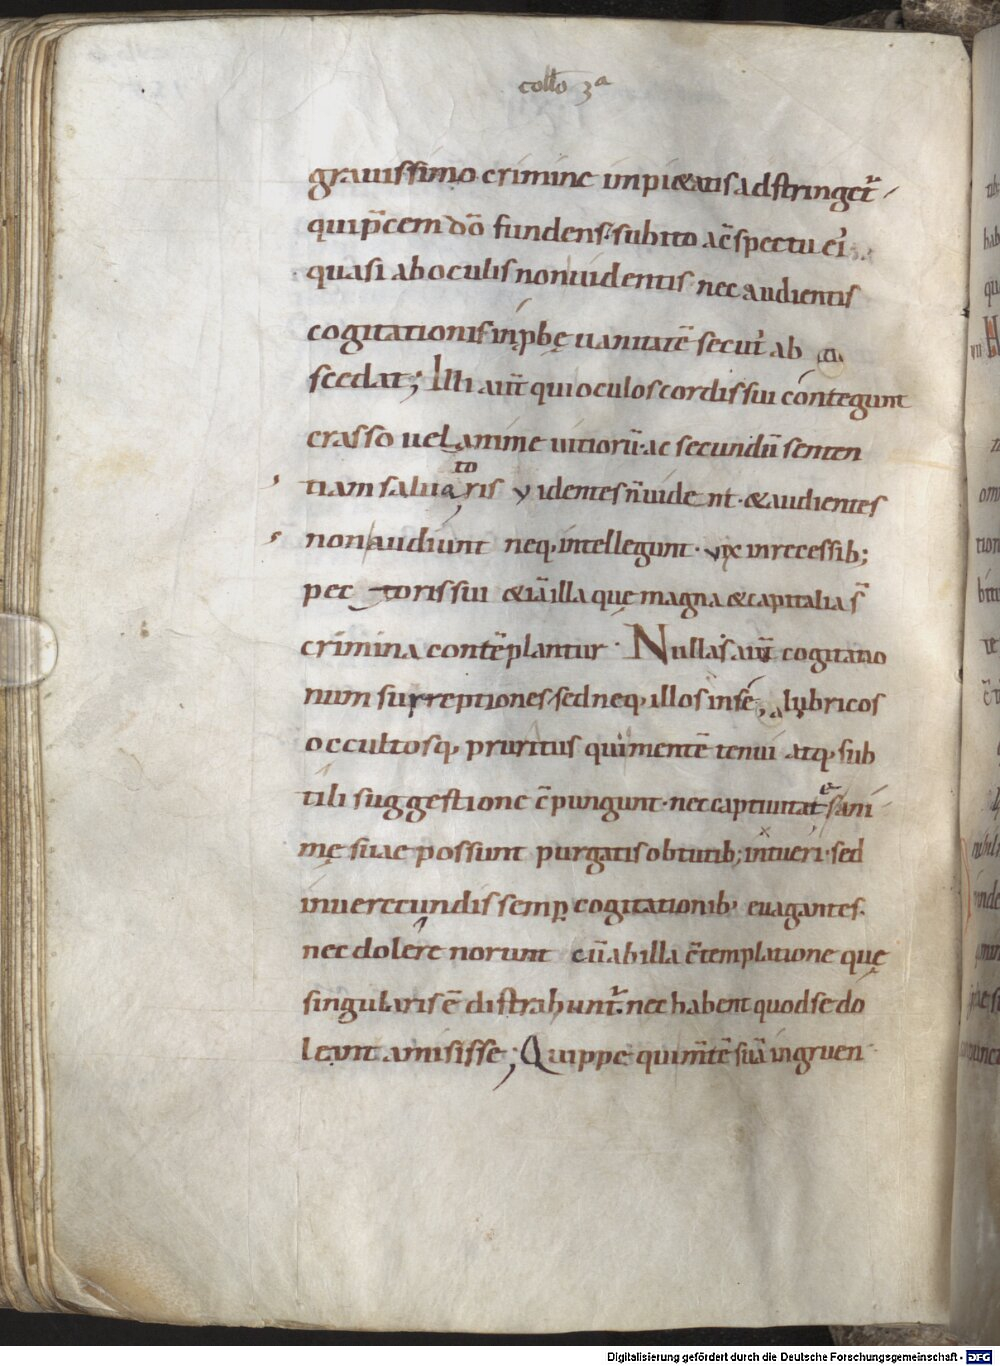 collo 3ª
grauissimo crimine impi&atis adstringet᷑
qui p̄cem dō fundens. subito ac̄spectu ei᷑
quasi ab oculis non uidentis nec audientis
cogitationis inpbę uanitatē secut᷑ ab
scedat; Illi aut̄ qui oculos cordis sui contegunt
crasso uelamine uitiorū. ac secundū senten
tiam saluatoris videntes n̄ uident. & audientes
non audiunt neq, intellegunt. vix in recessib;
pectoris sui &iā illa que magna & capitalia s̄
crimina contēplantur. Nullas aut̄ cogitatio
num surreptiones. sed neq, illos insē lubricos
occultosq, pruritus qui mentē tenui atq, sub
tili suggestione c̄pungunt. nec captiuitatēs ani
mę suae possunt purgatis obtutib; intueri. sed
inuerecundis semp cogitationib; euagantes.
nec dolere norunt cū ab illa c̄templatione quę
singularis ē distrahunt᷑. nec habent quod se do
leant amisisse; Quippe qui m̄tē suā ingruen
Digitalisierung gefördert durch die Deutsche Forschungsgemeinschaft - DFG